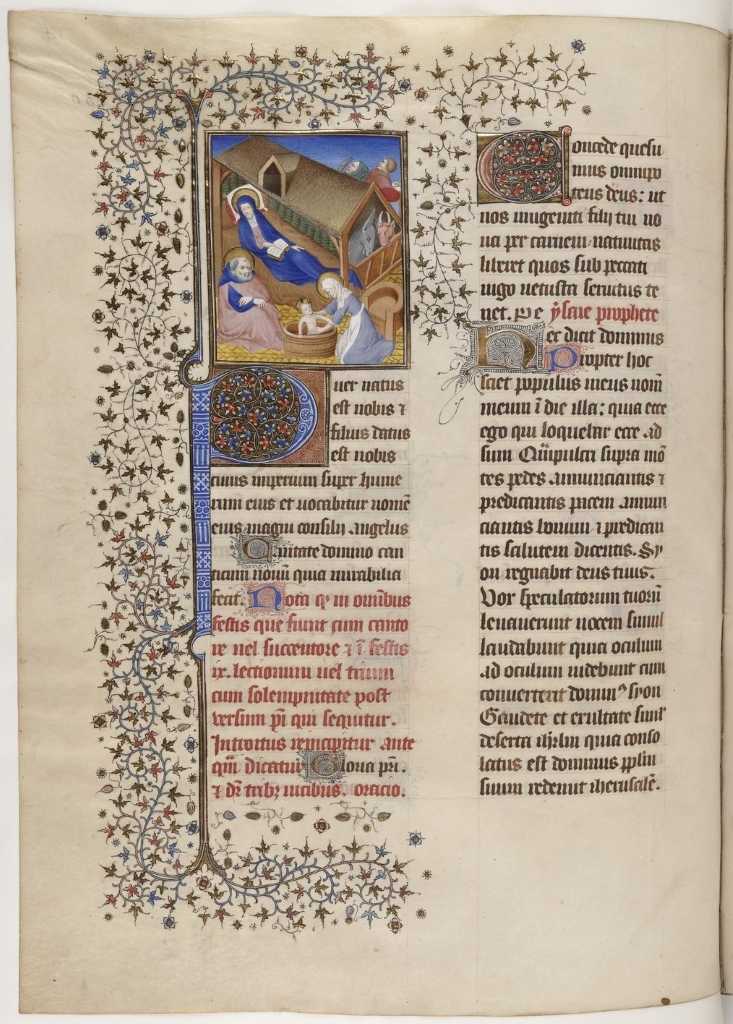 Puer natus
est nobis ⁊
filius datus
est nobis
cuius imperium super hume
rum eius et uocabitur nomē
eius magni consilij angelus
Cantate domino can
ticum nouū quia mirabilia
fecit. Nota ꝙ in omībus
festis que fiunt cum canto
re uel succentore ⁊ ī festis
ix. lectionum uel trium
cum solempnitate post
versum pᷓi qui sequitur.
Introitus reincipitur ante
qm̄ dicatur Gloria pr̄i.
⁊ dr̄ tribȝ uicibus. oracio.
Concede quesu
mus omnipo
tens deus: ut
nos unigeniti filij tui no
ua per carnem natiuitas
liberet quos sub peccati
iugo uetusta seruitus te
net. ysaie prophete
Hec dicit dominus
Propter hoc
sciet populus meus nom̄
meum ī die illa: quia ecce
ego qui loquebar ecce ad
sum Quā pulcri supra mō
tes pedes annunciantis ⁊
predicantis pacem annun
ciantis bonum ⁊ predican
tis salutem dicentis. Sy
on regnabit deus tuus.
Vox speculatorum tuorū
leuauerunt uocem simul
laudabunt quia oculum
ad oculum uidebunt cum
conuerterit domin᷒ syon
Gaudete et exultate simul
deserta ihrlm quia conso
latus est dominus pplm
suum redemit iherusalē.